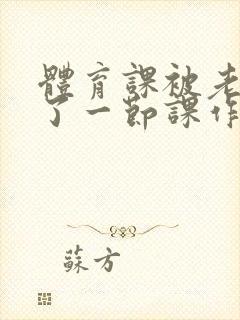 體育課被老
了一節課作
蘇方